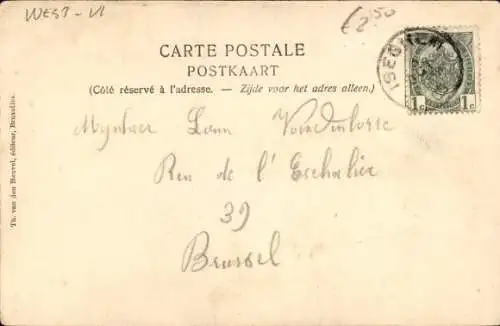 WEST-VL
€2,50
CARTE POSTALE
POSTKAART
(Côté réservé à l'adresse. — Zijde voor het adres alleen.)
ISEGHEM
1c 1c
Mynheer Leon
Rue de l' Escalier
39
Brussel
Th. van den Heuvel, éditeur, Bruxelles.